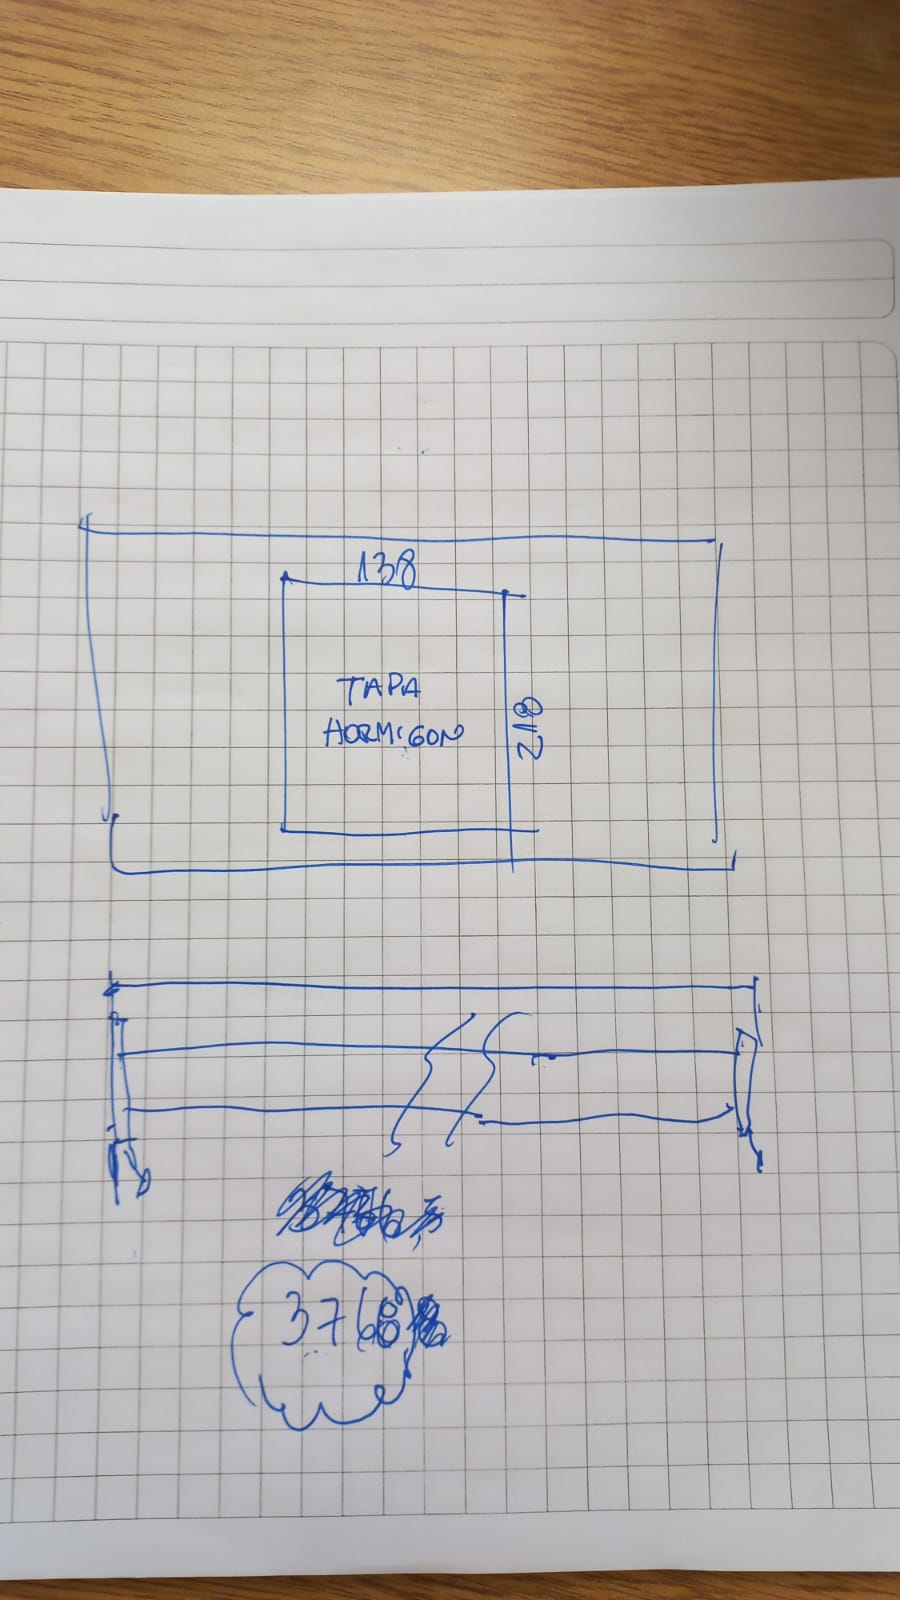 138
TAPA
HORMIGON
218
3768